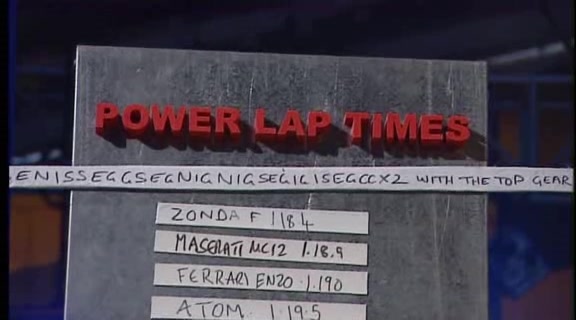 POWER LAP TIMES
ENISSEGGSEGNIGNIGSEGIGISEGCCX2 WITH THE TOP GEAR
ZONDA F 1 18 4
MASERATI MC12 1.18.9
FERRARI ENZO 1.190
ATOM 1.19.5